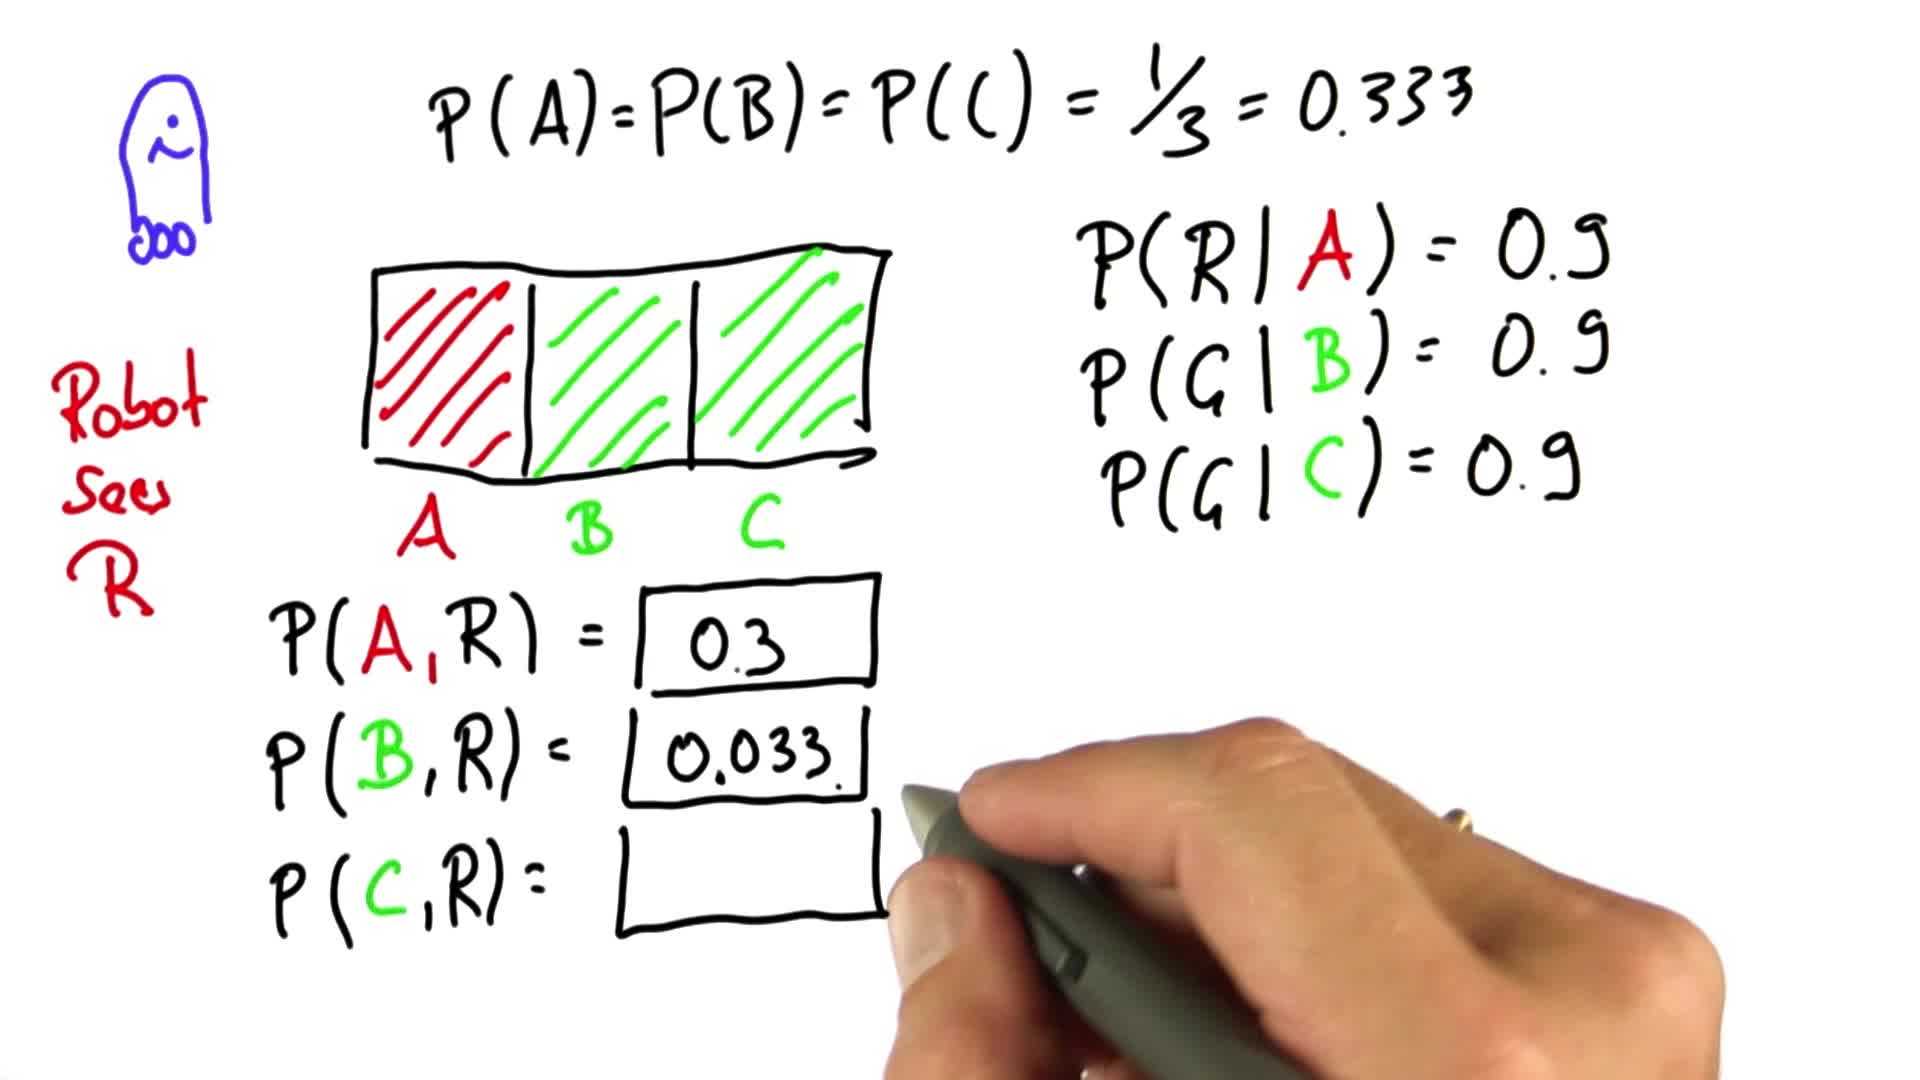 P(A)=P(B)=P(C) = 1/3 = 0.333
P(R|A) = 0.9
P(G|B) = 0.9
P(G|C) = 0.9
Robot
Sees
R
A B C
P(A,R) = 0.3
P(B,R) = 0.033
P(C,R) =